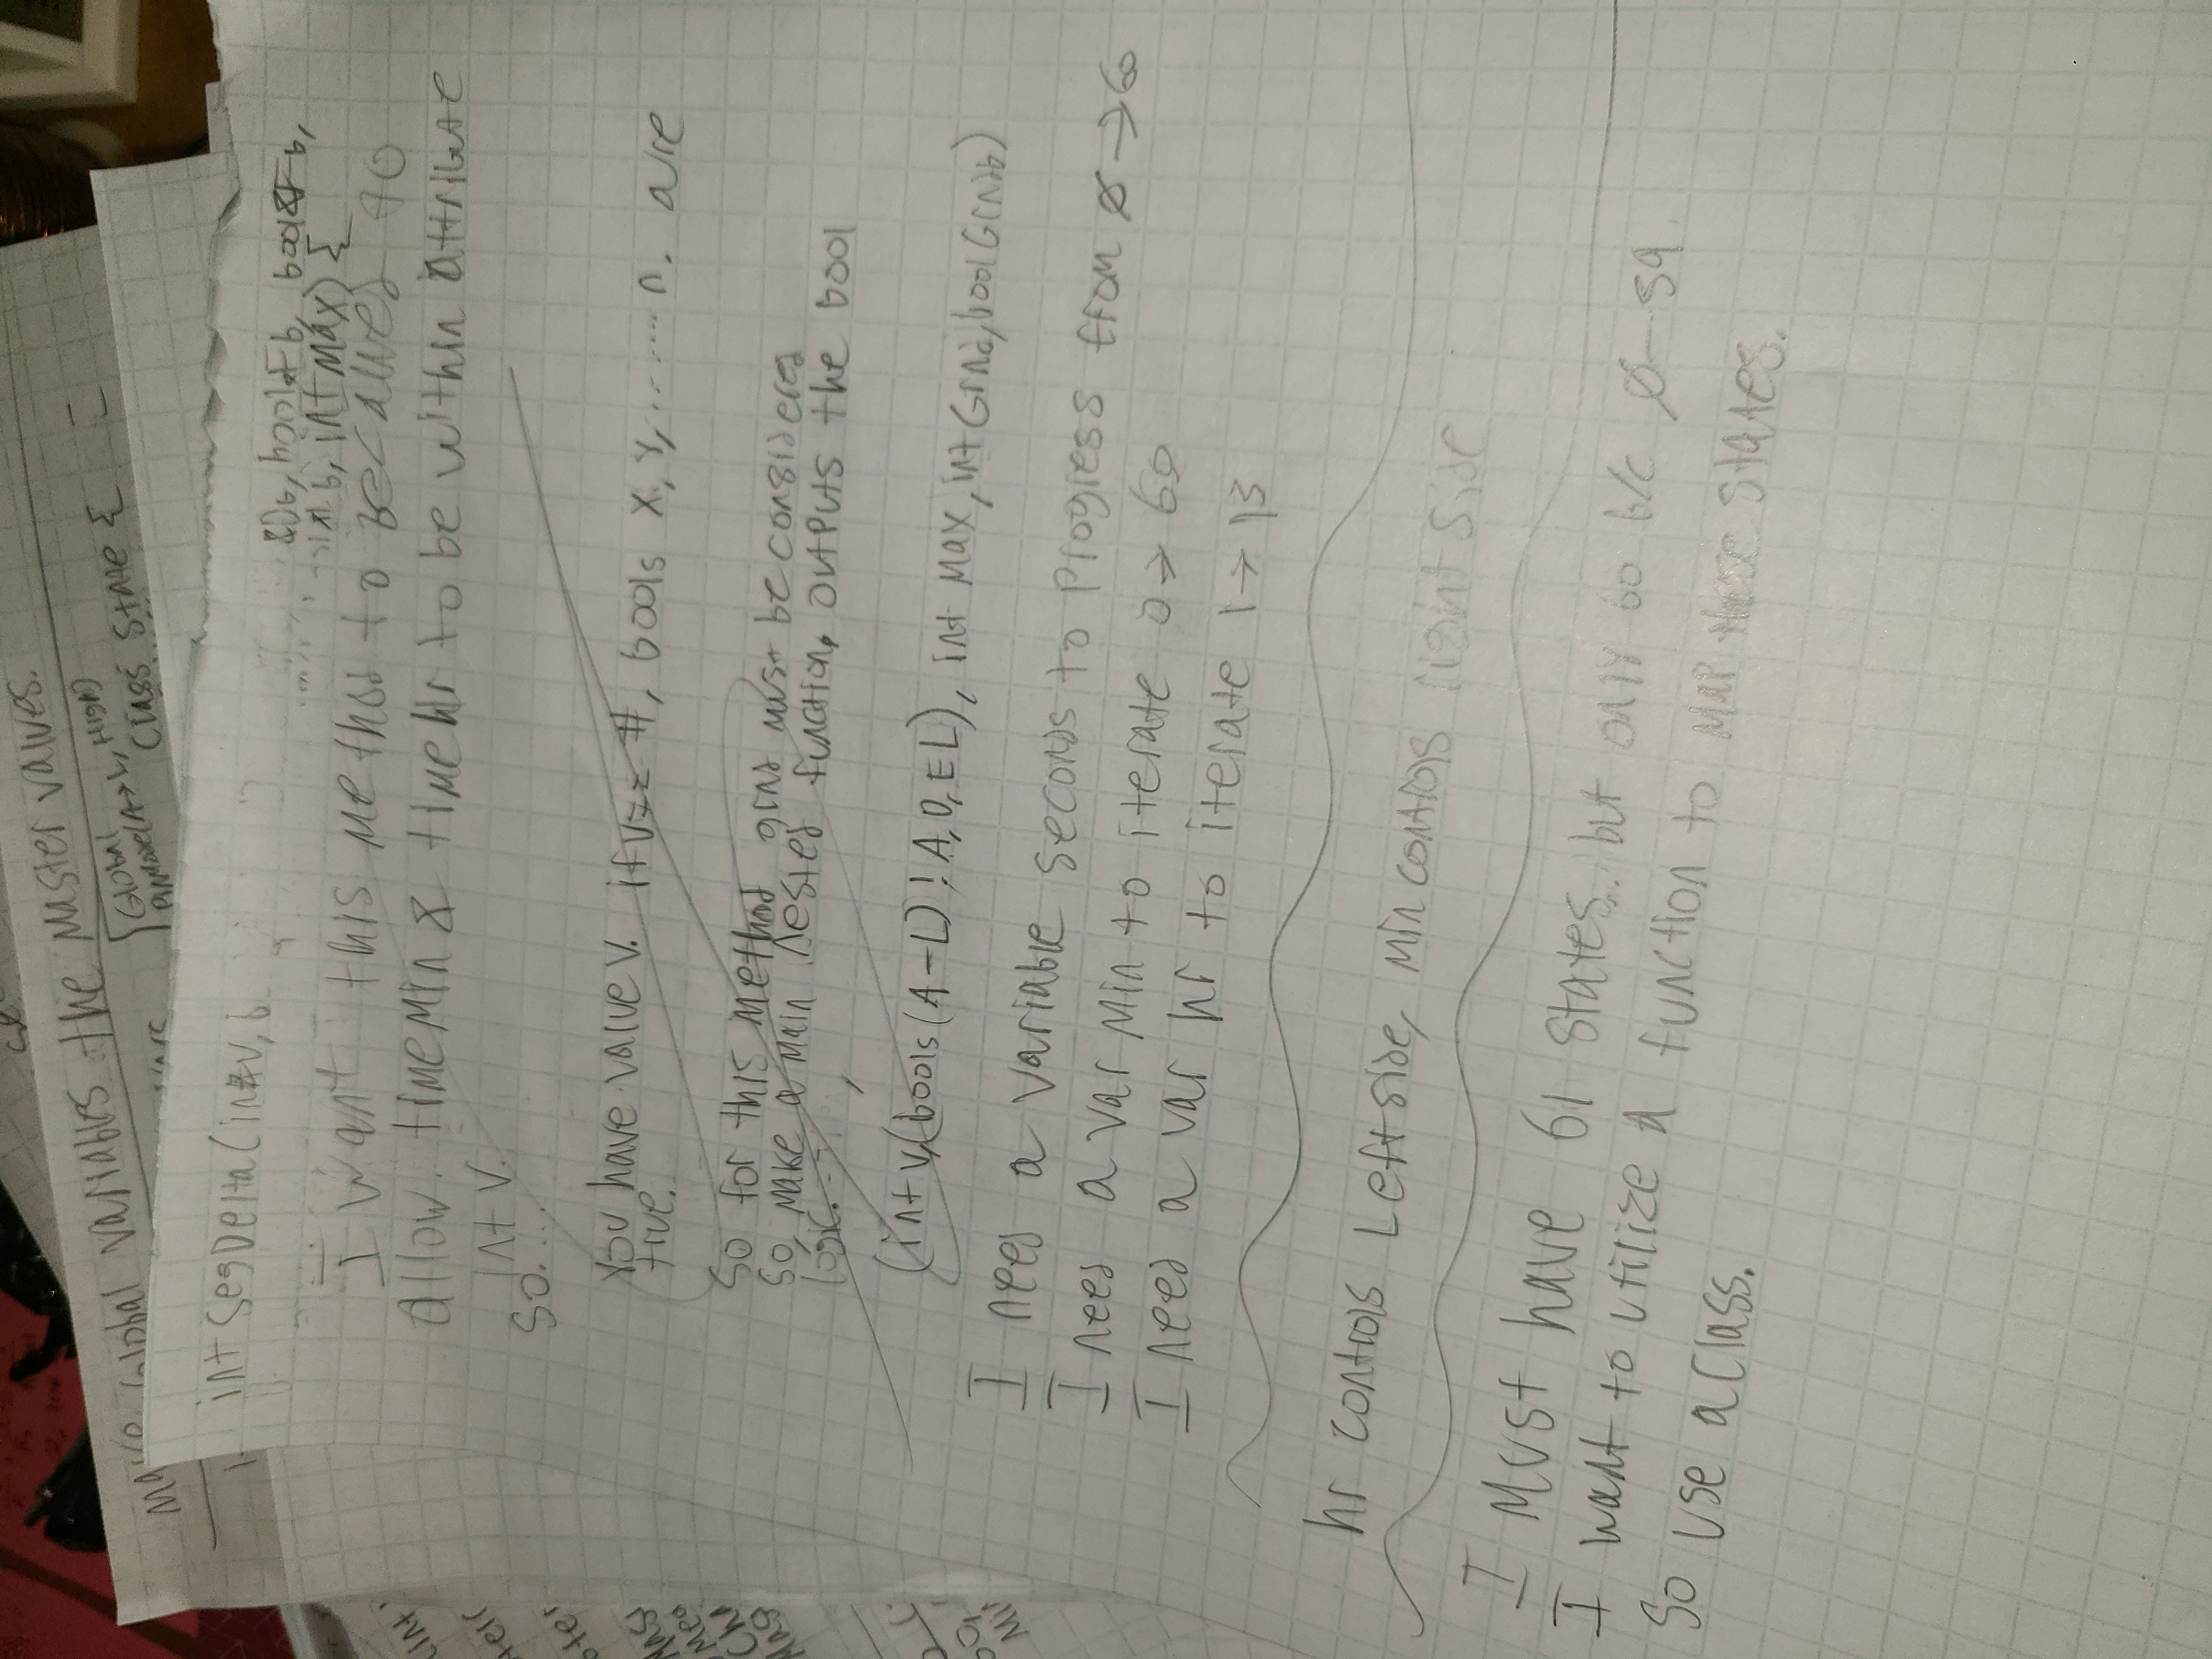 Make Global variables the Master values.
Global
PinMode(A→L, High)
Class State {
int segDelta(int&v, b
&Db, bool&Fb, bool&Fb,
b, int max) {
I want this method to be called to
allow timeMin & timeHr to be within attribute
int v.
So....
You have value v. if v == #, bools x, y, ....... n. are
true.
So for this method grnd must be considered
So, make a main nested function, outputs the bool
logic.
(int v,(bools (A-L) ! A, D, E L), int max, int Grnd, bool Grndb)
I need a variable seconds to progress from 0 → 60
I need a var min to iterate 0 → 60
I need a var hr to iterate 1 → 13
hr controls Left side, min controls right side
I must have 61 states.. but only 60 b/c 0-59
I want to utilize a function to map these states.
So use a class.